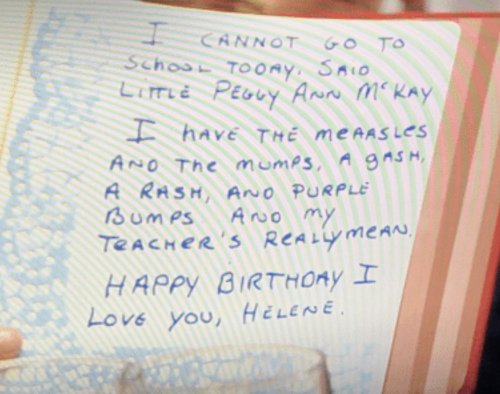 I CANNOT GO TO
SCHOOL TODAY, SAID
LITTLE PEGGY ANN McKAY
I HAVE THE MEAASLES
AND THE MUMPS, A GASH,
A RASH, AND PURPLE
BUMPS AND MY
TEACHER'S REALLY MEAN.
HAPPY BIRTHDAY I
LOVE YOU, HELENE.